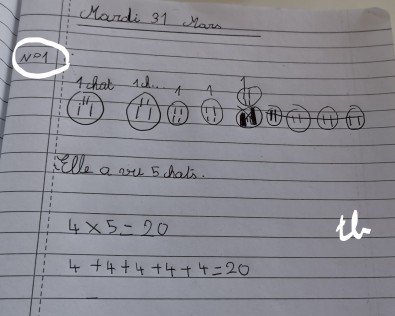 Mardi 31 Mars
N°1
1 chat 1 ch... 1 1 1
Elle a vu 5 chats.
4 × 5 = 20
4 + 4 + 4 + 4 + 4 = 20
tb